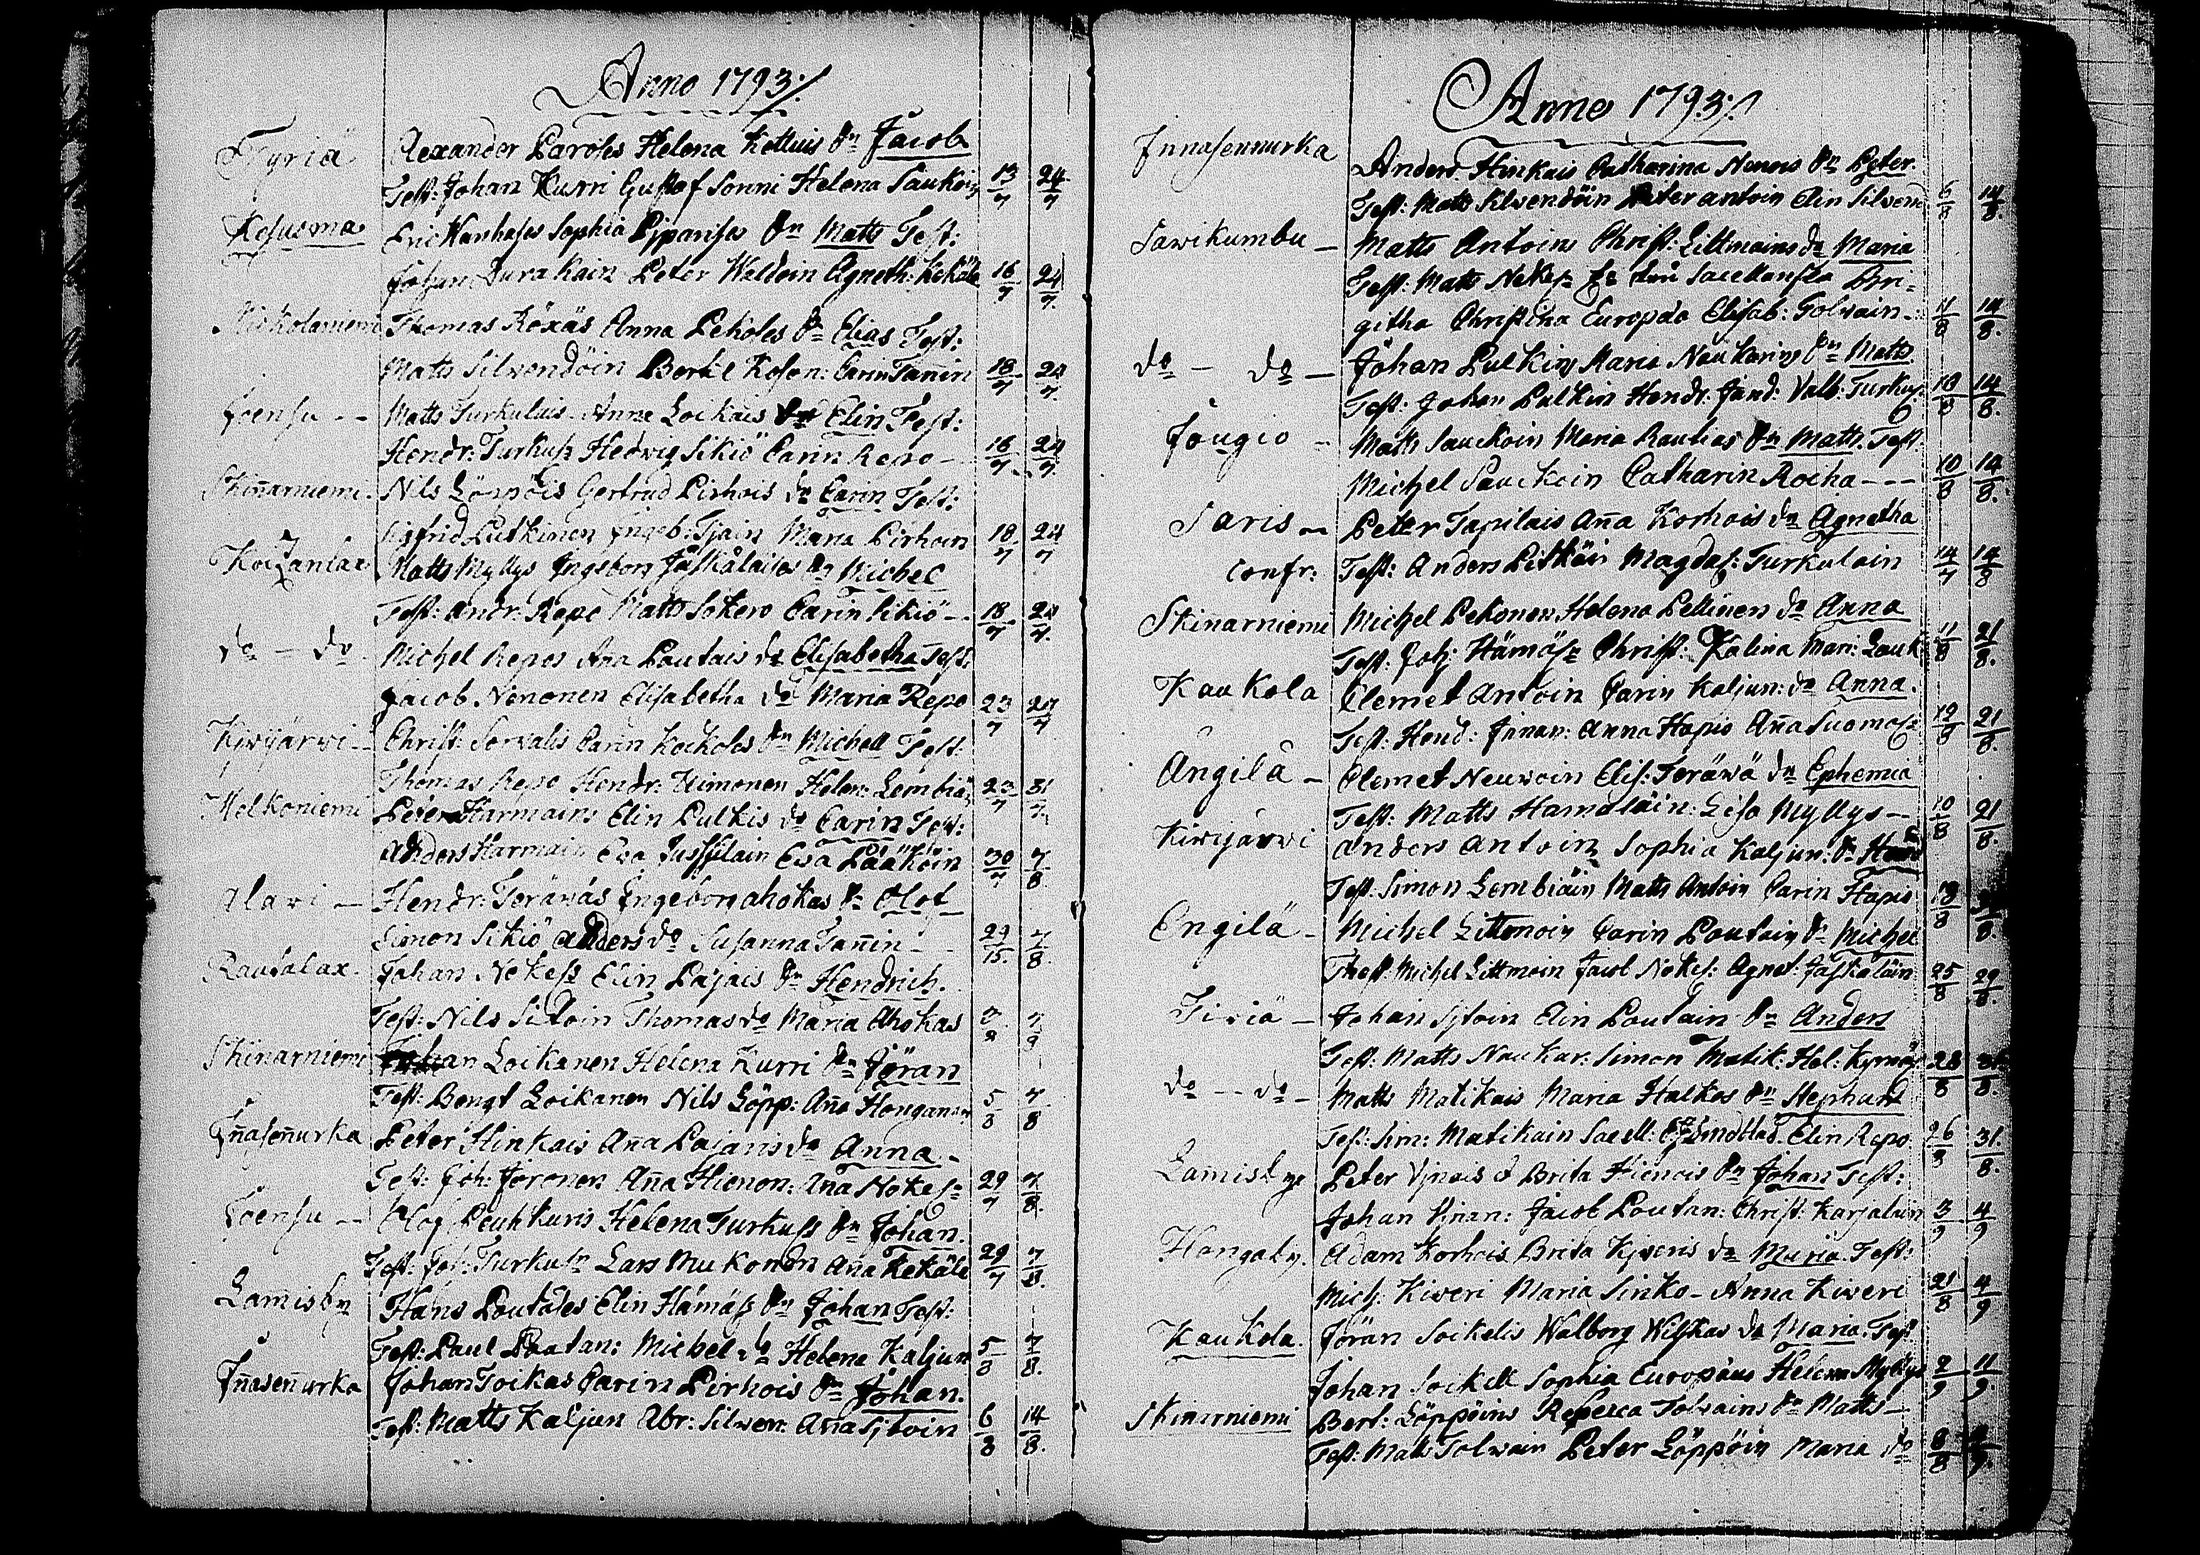 Anno 1793 ./.
Tyriä Alexander Paroses Helena Kottuis Sn Jacob
Test: Johan Kurri Gustaf Sonni Helena Saukoin 13/7 24/7
Kesusma Eric Wanhases Sophia Pipanises Sn Matts Test:
Johan Durakain Peter Waldoin Agneth: Kekäle 16/7 24/7
Thomas Röxäs Anna Pekoles Sn Elias Test:
Matts Silvendöin Bertil Koson: Carin Tan̄in 18/7 24/7
Joensu -- Matts Turkulais Anna Loikais dr Elin Test:
Hendr: Turkuss Hedvig Sikiö Carin Repo - 16/7 24/7
Skin̄arniemi. Nils Löppöis Gertrud Pirhois dr Carin Test:
Sigfrid Putkinen Ingeb: Tjain Maria Pirhoin 18/7 24/7
Koitzanlax Matts Myllys Ingebor Jäskäläises Sn Michel
Test: Andr: Repo Matts Sokero Carin Sikiö -- 18/7 24/7
do - do Michel Repos An̄a Pautais dr Elisabetha Test:
Jacob Nenonen Elisabetha do Maria Repo 23/7 24/7
Kirijärwi - Christ: Sorvalis Carin Kockoles Sn Michell Test:
Thomas Repo Hendr: Uimonen Helen: Lembiä 23/7 31/7
Melkoniemi Peter Harmains Elin Pulkis dr Carin Test:
Anders Harmain Eva Jussilain Eva Pääköin 30/7 7/8
Alawi - Hendr: Teräwäs Ingebor Ahokas Sn Olof
Simon Sikiö Anders do Susanna Tan̄in - 29/15 7/8
Rautalax. Johan Nokess Elin Pajais Sn Hendrich.
Test: Nils Siloin Thomas do Maria Ahokas
Skinarniemi Johan Loikanen Helena Kurri Sn Jöran
Test: Bengt Loikanen Nils Löpp: An̄a Hongan 5/8 7/8
In̄asen̄urka Peter Hinkais An̄a Pajaris dr Anna -
Test: Joh: Joronen An̄a Hienon: An̄a Nokes 29/7 7/8
Joensu -- Olof Peuhkuris Helena Turkuss Sn Johan.
Test: Joh: Turkuss Lars Mukonen An̄a Kekäle 29/7 7/8
Lamisby Hans Poutales Elin Hämäss Sn Johan Test:
Test: Paul Poutan: Michel do Helena Kaljun 5/8 7/8.
In̄asen̄urka Johan Toikas Carin Pirhois Sn Johan.
Test: Matts Kaljun Abr: Silven: An̄a Sjtoin 6/8 14/8.
Anno 1793 ./.
Innasennurka Anders Hinkais Catharina Nenons Sn Peter.
Test: Matts Silvendöin Peter Antoin Elin Silvend 6/8 14/8.
Sarikumbu - Matts Antoins Christ: Littmains dr Maria
Test: Matts Nokess
githa Christina Europäa Elisab: Tolvain - 11/8 14/8.
do - do - Johan Pulkins Maria Naukarins Sn Matts
Test: Johan Pulkin Hendr: Jänd: Valb: Turkus: 10/8 14/8.
Jougio - Matts Sauckoin Maria Rautias Sn Matts. Test:
Michel Sauckoin Catharin Rocka --- 10/8 14/8.
Saris -- Peter Tapilais An̄a Korhois dr Agnetha
confr: Test: Anders Pitkäin Magdas: Turkulain 14/7 14/8
Skinarniemi Michel Pekonen Helena Pellinens dr Anna
Test: Joh: Hämöss Christ: Kalina Mari: Lauk 11/8 21/8.
Kaukola Clemet Antoin Carin Kaljun: dr Anna.
Test: Hend: Jnnan: Anna Hapio An̄a Suomoss 12/8 21/8.
Ängilä - Clemet Neuvoin Elis: Teräwä dr Ephemia
Test: Matts Hamoläin: Lisa Myllys -- 10/8 21/8.
Kirijärwi Anders Antoins Sophia Kaljun: Sn
Test: Simon Lembiäin Matts Antoin Carin Hapio 18/8
Engilä - Michel Littmoin Carin Poutain Sn Michel
Thest: Michel Littmoin Jacob Nokes: Agnet: Jäskeläin 25/8 29/8.
Tiriä - Johan Sjtoin Elin Poutain Sn Anders
Test: Matts Naukar: Simon Matik: Hel: Kymäs 28/8 31/8.
do -- do - Matts Matikais Maria Halkos Sn Stephan
Test: Sim: Matikain Sacell: Elin Repo 26/8 31/8.
Lamisbye Peter Vjnais & Brita Hienois Sn Johan Test:
Johan Vjnan: Jacob Poutan: Christ: Karjalain 3/9 4/9
Hongaby. Adam Korhois Brita Kjveris dr Maria. Test:
Mich: Kiveri Maria Sinko - Anna Kiveri 21/8 4/9
Kaukola. Jörän Soikelis Walborg Wilskas dr Maria. Test
Johan Soikell Sophia Europäus Helena Myllys 2/9 11/9.
Skinarniemi Bert: Löppöins Rebecca Tolvains Sn Matts -
Test: Matts Tolvain Peter Löppöin Maria do